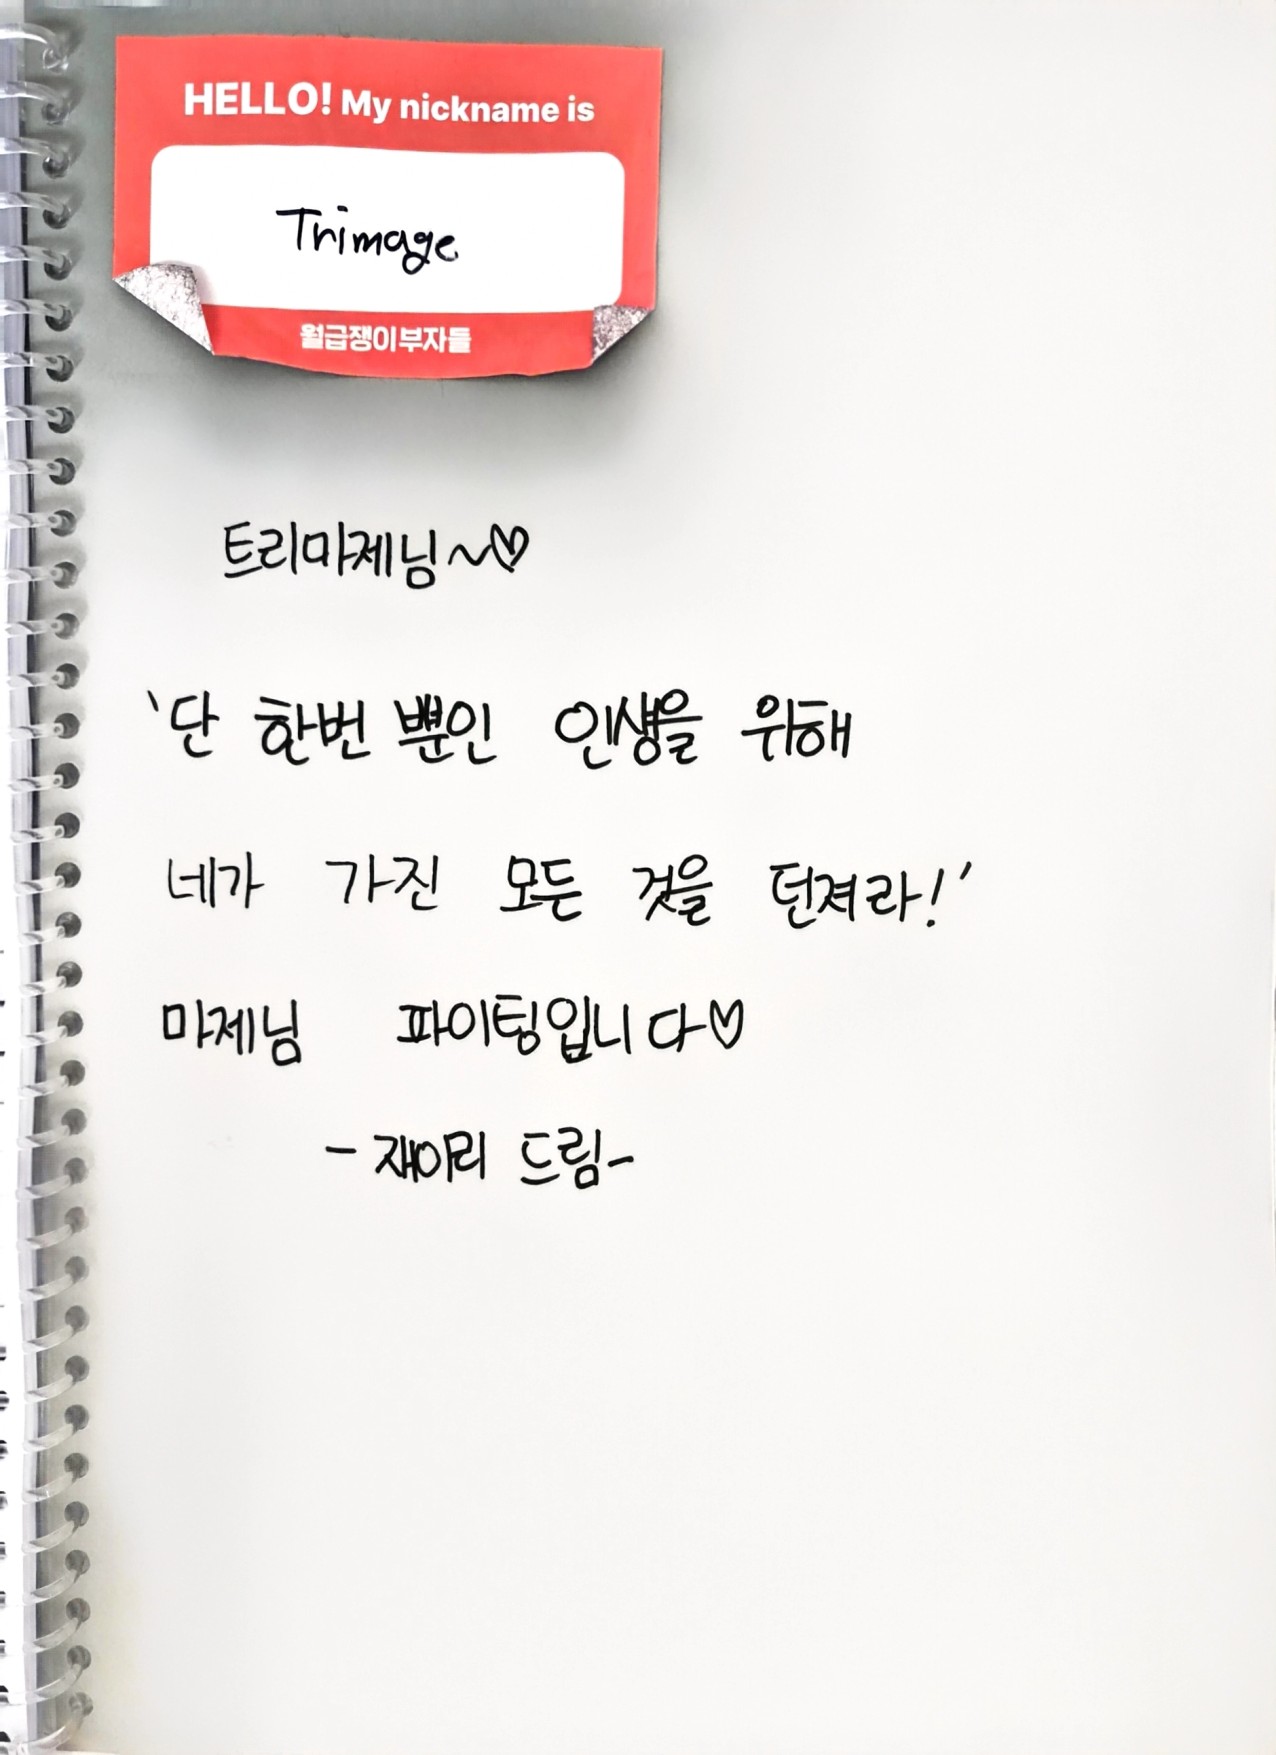 HELLO! My nickname is
Trimage
월급쟁이부자들
트리마제님~♡
'단 한번 뿐인 인생을 위해
네가 가진 모든 것을 던져라!'
마제님 파이팅입니다♡
- 재이리 드림-